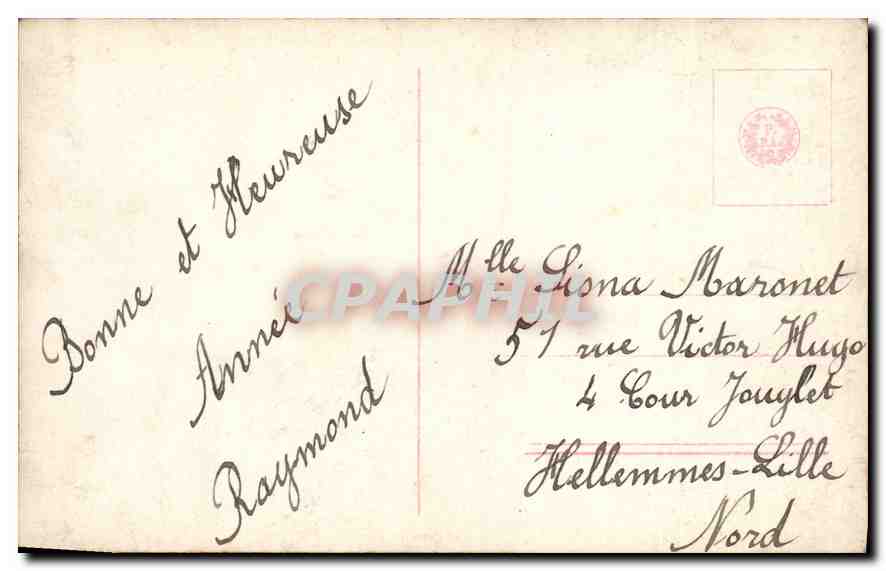 Bonne et Heureuse
Année
Raymond
Mlle Liona Maronet
51 rue Victor Hugo
4 Cour Jouglet
Hellemmes-Lille
Nord
CPAPHIL